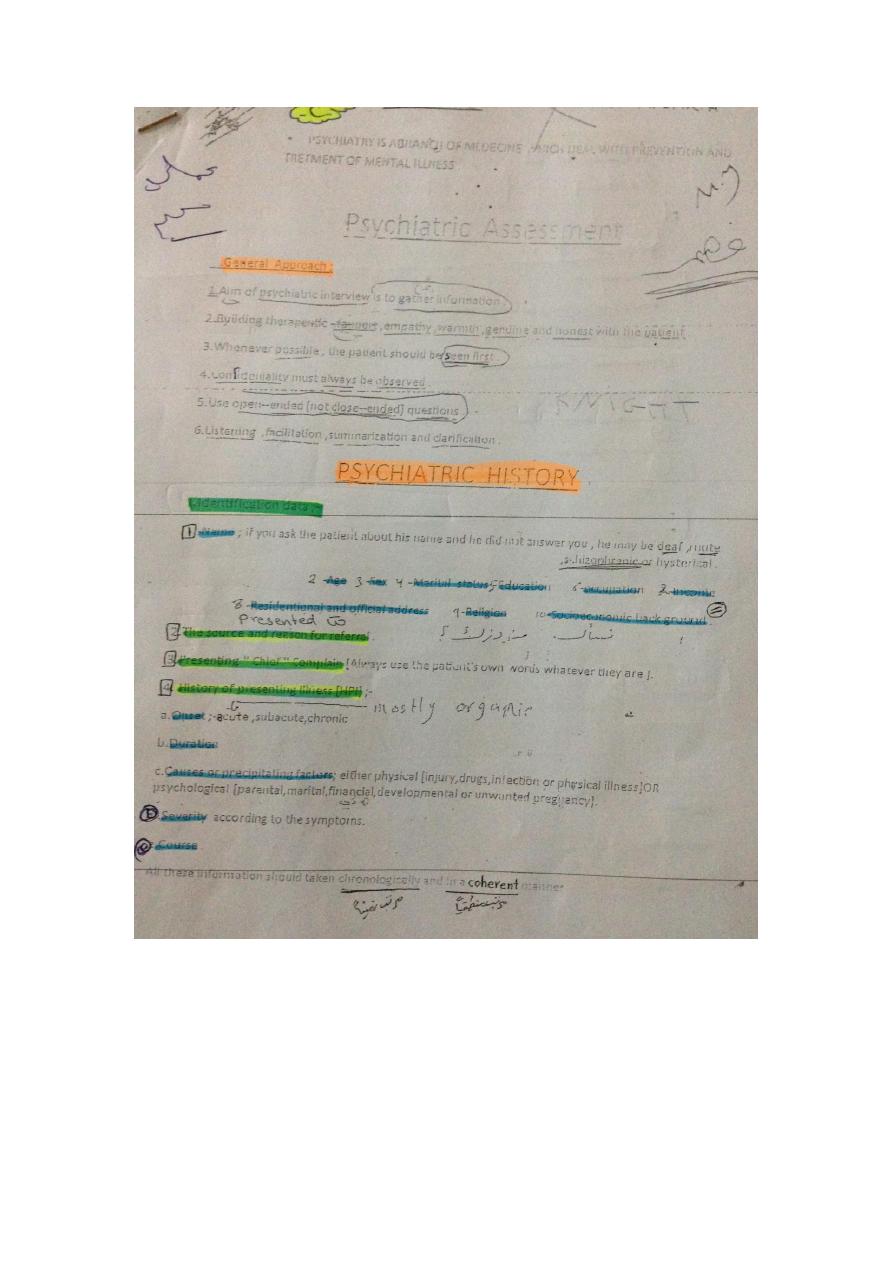 PSYCHIATRY IS ABRANCH OF MEDECINE ,WHICH DEAL WITH PREVENTION AND
TRETMENT OF MENTAL ILLNESS
Psychiatric Assessment
General Approach:
1.Aim of psychiatric interview is to gather information
2.Building therapeutic ,empathy ,warmth ,genuine and honest with the patient
3.Whenever possible, the patient should be seen first
4.Confideniality must always be observed
5.Use open--ended [not close--ended] questions
KNIGHT
6.Listening ,facilitation ,summarization and clarification .
PSYCHIATRIC HISTORY
Identification data;-
1 Name ; if you ask the patient about his name and he did not answer you , he may be deaf ,mute
,schizophranic or hysterical .
2 -Age 3 Sex 4 -Marital status 5 Education 6 -occupation 7 -Income
8 -Residentional and official address 9 -Religion 10 -Socioeconomic back ground
Presented to
2 The source and reason for referral
3 Presenting " Chief " Complain [Always use the patient's own words whatever they are ].
4 History of presenting illness [HPI] ;-
mostly organic
a. Onset ;-acute ,subacute,chronic
b.Duration
c.Causes or precipitating factors; either physical [injury,drugs,infection or physical illness]OR
psychological [parental,marital,financial,developmental or unwanted pregnancy].
D.Severity according to the symptoms.
e Course
All these information should taken chronologically and in a coherent manner